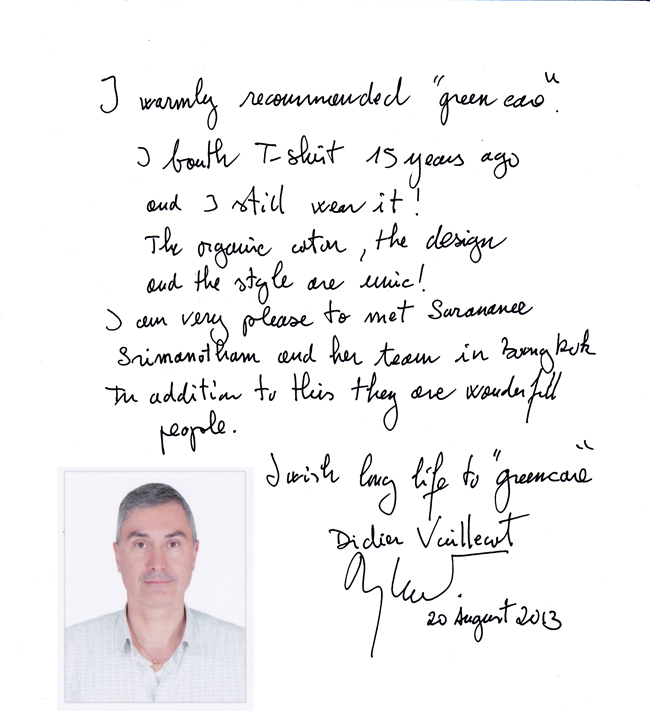 I warmly recommended "green care".
I bouth T-shirt 15 years ago
and I still wear it!
The organic coton, the design
and the style are unic!
I am very please to met Surananee
Srimanotham and her team in Bangkok
In addition to this they are wonderfull
people.
I wish long life to "greencare"
Didier Vuillecot
20 August 2013